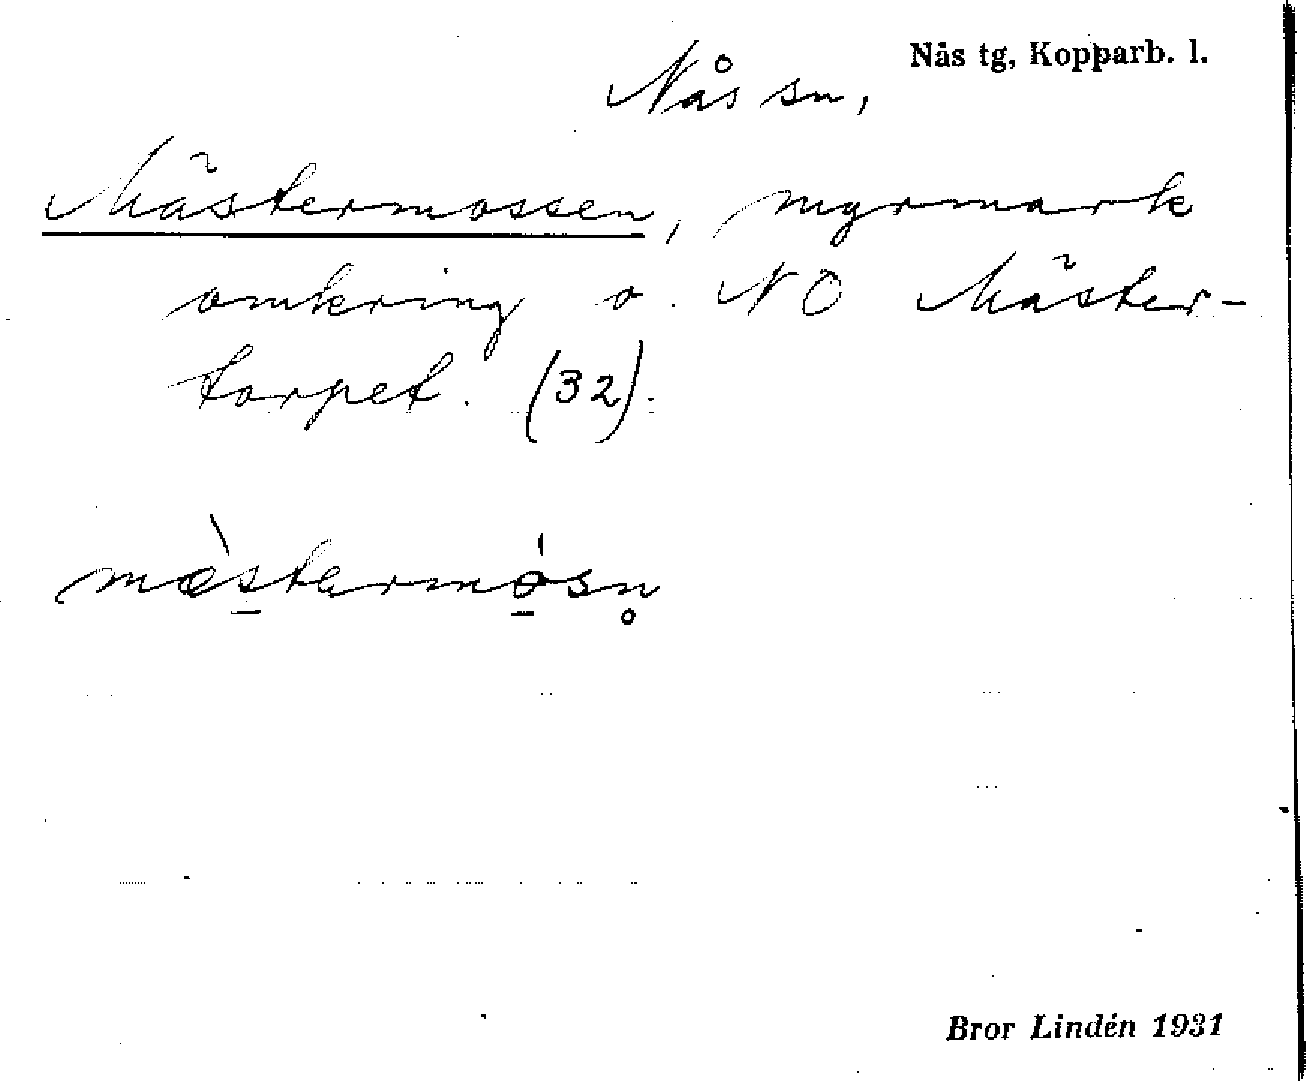 Nås tg, Kopparb. l.
Nås sn,
Mästermossen, myrmark
omkring o. NO Mäster-
torpet. (32).
mæ̀stermǿsn̥
Bror Lindén 1931